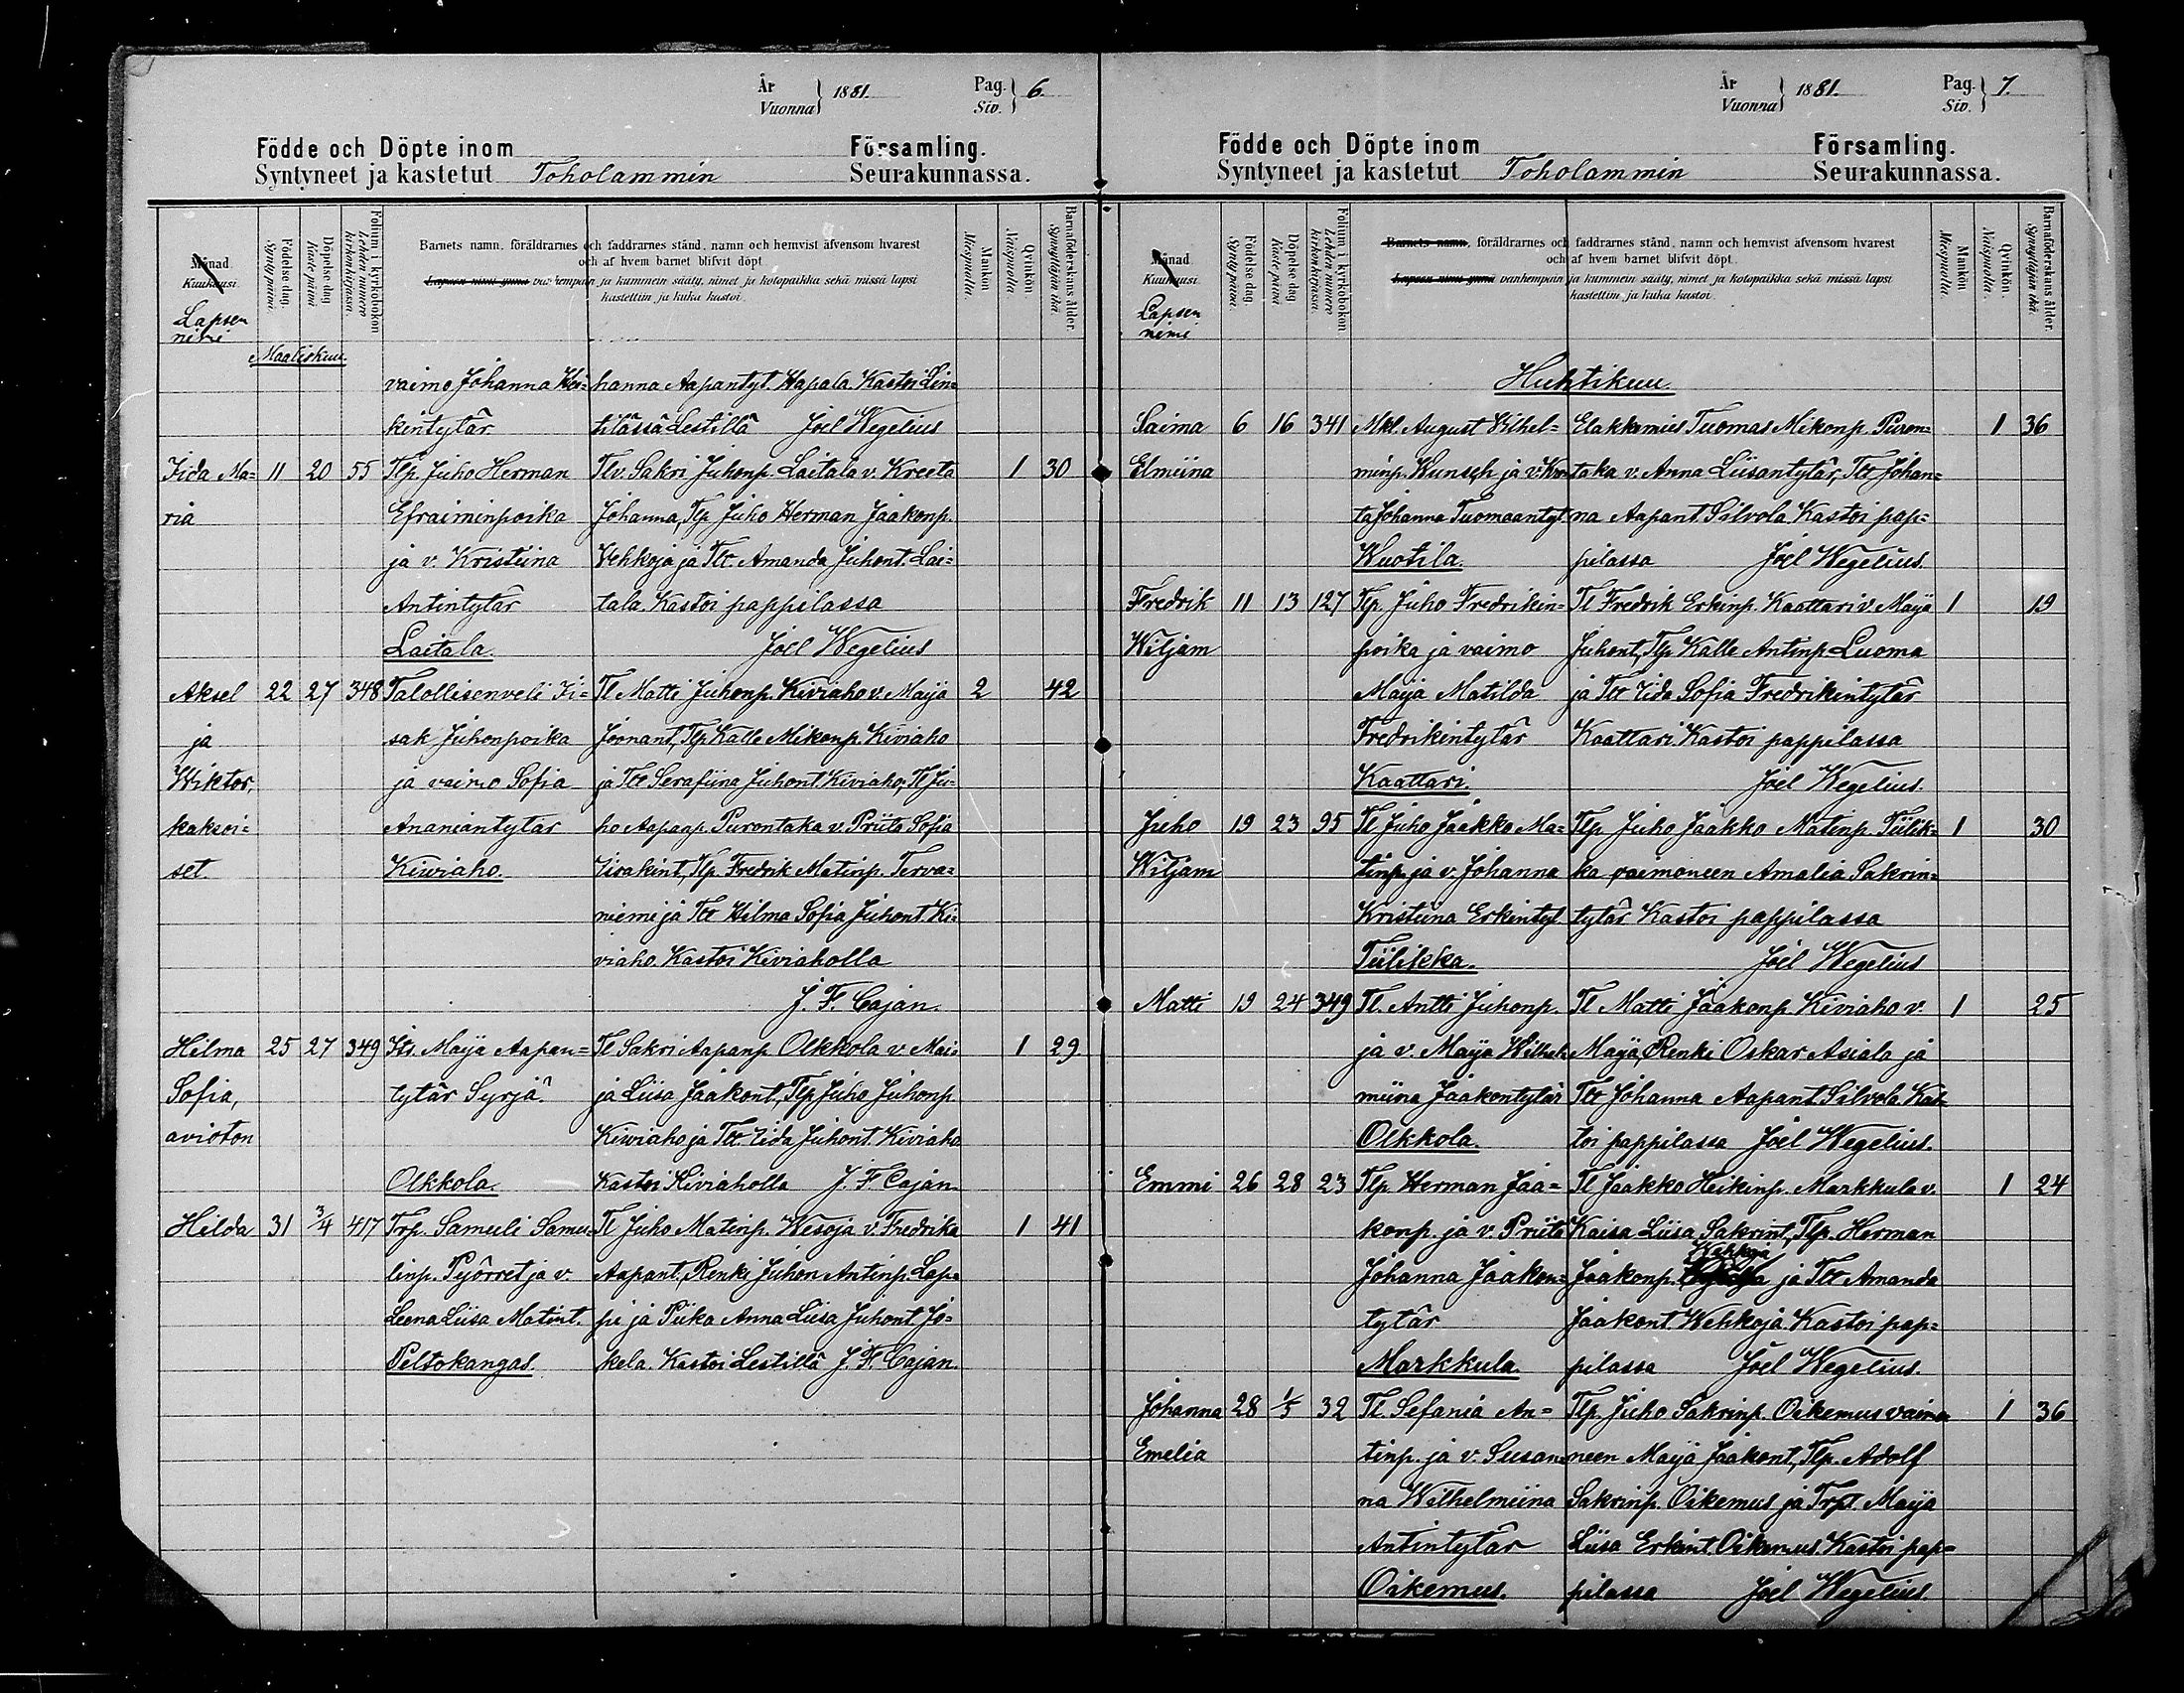 År
Vuonna } 1881. Pag.
Siv. } 6.
Födde och Döpte inom Församling.
Syntyneet ja kastetut Toholammin Seurakunnassa.
Månad
Kuukausi
Lapsen
nimi
Födelse dag.
Syntypäivä.
Döpelse dag
Kaste päivä
Folium i kyrkobokon
Lehden numero
kirkonkirjassa.
Barnets namn, föräldrarnes och faddrarnes stånd, namn och hemvist äfvensom hvarest
och af hvem barnet blifvit döpt.
Lapsen nimi ynnä vanhempain ja kummein sääty, nimet ja kotopaikka sekä missä lapsi
kastettiin, ja kuka kastoi.
Mankön
Miespuolta.
Qvinkön.
Naispuolta.
Barnaföderskans ålder.
Synnyttäjän ikä.
Maaliskuu.
vaimo Johanna Hei= hanna Aapantyt. Hapala Kastoi Lin=
kintytär. tilässä Lestillä Joel Wegelius
Iida Ma= 11 20 55 Tlp. Juho Herman Tlv. Sakri Juhonp. Laitala v. Kreeta 1 30
ria Efraiminpoika Johanna, Tlp Juho Herman Jaakonp.
ja v. Kristiina Vehkoja ja Tlt. Amanda Juhont. Lai=
Antintytär tala. Kastoi pappilassa
Laitala. Joel Wegelius
Aksel 22 27 348 Talollisenveli Ii= Tl Matti Juhonp. Kiviaho v. Maija 2 42
ja sak Juhonpoika Joonant, Tlp Kalle Mikonp. Kiviaho
Wiktor, ja vaimo Sofia ja Tlt Serafiina Juhont. Kiviaho, Tl Ju=
kaksoi= Ananiantytär ho Aapanp. Purontaka v. Priita Sofia
set. Kiwiaho. Iisakint, Tlp. Fredrik Matinp. Terva=
niemi ja Tlt Hilma Sofia Juhont. Ki=
viaho. Kastoi Kiviaholla
J. F. Cajan.
Hilma 25 27 349 Its. Maija Aapan= Tl Sakri Aapanp. Olkkola v. Mai= 1 29
Sofia, tytär Syrjä. ja Liisa Jaakont, Tlp Juho Juhonp.
avioton Kiwiaho ja Tlt. Iida Juhont. Kiviaho
Olkkola. Kastoi Kiviaholla J. F. Cajan
Hilda 31 3/4 417 Trp. Samuli Samu= Tl Juho Matinp. Wesoja v. Fredrika 1 41
linp. Pyörret ja v. Aapant, Renki Juhon Antinp. Lap=
Leena Liisa Matint. pi ja Piika Anna Liisa Juhont. Jo=
Peltokangas. kela. Kastoi Lestillä J. F. Cajan.
År
Vuonna } 1881. Pag.
Siv. } 7.
Födde och Döpte inom Församling.
Syntyneet ja kastetut Toholammin Seurakunnassa.
Månad
Kuukausi
Lapsen
nimi
Födelse dag.
Syntypäivä.
Döpelse dag
Kaste päivä
Folium i kyrkobokon
Lehden numero
kirkonkirjassa.
Barnets namn, föräldrarnes och faddrarnes stånd, namn och hemvist äfvensom hvarest
och af hvem barnet blifvit döpt.
Lapsen nimi ynnä vanhempain ja kummein sääty, nimet ja kotopaikka sekä missä lapsi
kastettiin, ja kuka kastoi.
Mankön
Miespuolta.
Qvinkön.
Naispuolta.
Barnaföderskans ålder.
Synnyttäjän ikä.
Huhtikuu.
Saima 6 16 341 Mkl. August Vilhel= Elakkamies Tuomas Mikonp. Puron= 1 36
Elmiina minp. Wunsch ja v. Kree= taka v. Anna Liisantytär, Tlt Johan=
ta Johanna Tuomaantyt. na Aapant. Silvola. Kastoi pap=
Wuotila. pilassa Joel Wegelius.
Fredrik 11 13 127 Tlp. Juho Fredrikin= Tl Fredrik Erkinp. Kaattari v. Maija 1 19
Wiljam poika ja vaimo Juhont, Tlp Kalle Antinp Luoma
Maija Matilda ja Tlt Iida Sofia Fredrikintytär
Fredrikintytär Kaattari. Kastoi pappilassa
Kaattari. Joel Wegelius.
Juho 19 23 95 Tl Juho Jaakko Ma= Tlp Juho Jaakko Matinp. Tiilik= 1 30
Wiljam tinp. ja v. Johanna ka vaimoneen Amalia Sakrin=
Kristiina Erkintyt. tytär Kastoi pappilassa
Tiilikka. Joel Wegelius
Matti 19 24 349 Tl. Antti Juhonp. Tl Matti Jaakonp. Kiviaho v. 1 25
ja v. Maija Wilhel= Maija, Renki Oskar Asiala ja
miina Jaakontytär Tlt Johanna Aapant. Silvola. Kas=
Olkkola. toi pappilassa Joel Wegelius.
Emmi 26 28 23 Tlp Herman Jaa= Tl Jaakko Heikinp. Markkula v. 1 24
konp. ja v. Priita Kaisa Liisa Sakrint, Tlp. Herman
Johanna Jaakon= Jaakonp. Wehkoja ja Tlt Amanda
tytär Jaakont. Wehkoja. Kastoi pap=
Markkula pilassa Joel Wegelius.
Johanna 28 1/5 32 Tl. Sefania An= Tlp. Juho Sakrinp. Oikemus vaimo= 1 36
Emelia tinp. ja v. Susan= neen Maija Jaakont, Tlp. Adolf
na Wilhelmiina Sakrinp. Oikemus ja Trpt. Maija
Antintytär Liisa Erkint. Oikemus. Kastoi pap=
Oikemus. pilassa Joel Wegelius.